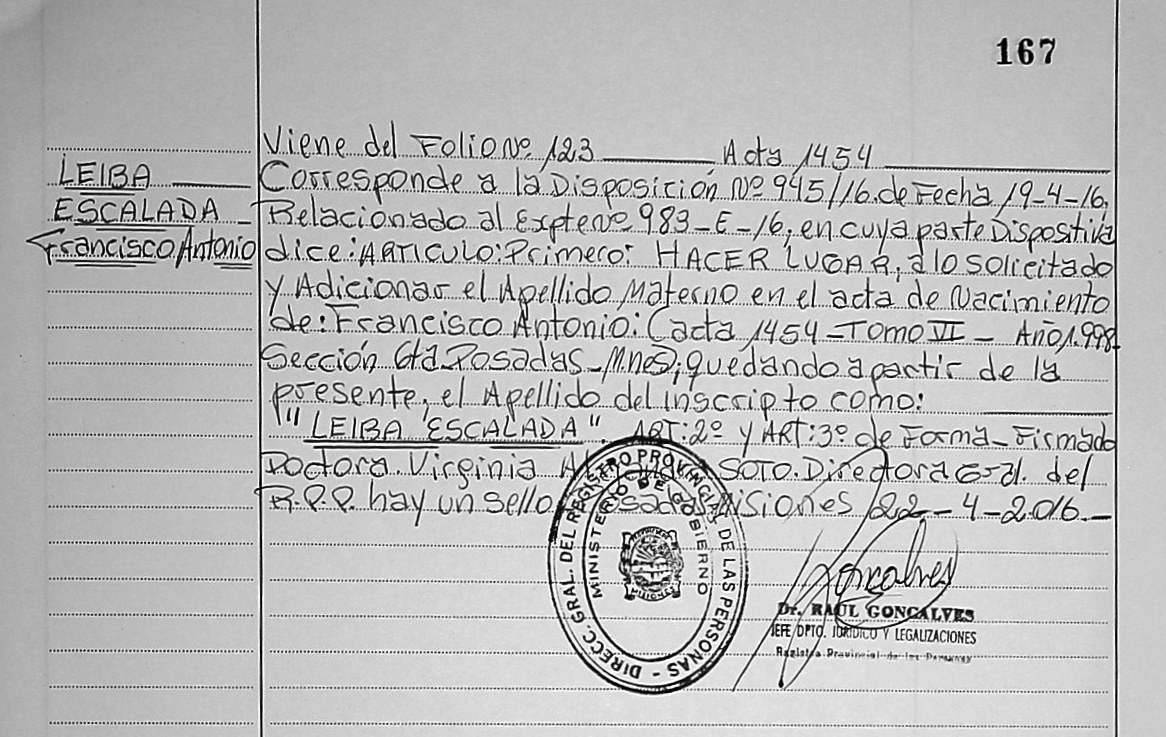 167
Viene del Folio Nº 123 Acta 1454
LEIBA
ESCALADA
Francisco Antonio
Corresponde a la Disposición Nº 945/16. de Fecha 19-4-16,
Relacionado al Expte Nº 983-E-16, en cuya parte Dispositiva
dice: ARTICULO: Primero: HACER LUGAR, a lo solicitado
y Adicionar el Apellido Materno en el acta de Nacimiento
de: Francisco Antonio: (acta 1454 - Tomo VI - Año 1.998
Sección 6ta Posadas - Mnes), quedando a partir de la
presente, el Apellido del inscripto como:
"LEIBA ESCALADA". ART: 2º y ART: 3º de Forma - Firmado
Doctora Virginia SOTO. Directora Gral. del
R.P.P. hay un sello Posadas Misiones 22-4-2.016.-
DIRECC. GRAL. DEL REGISTRO PROVINCIAL DE LAS PERSONAS -
MINISTERIO DE GOBIERNO
MISIONES
Goncalves
Dr. RAUL GONCALVES
JEFE DPTO. JURIDICO Y LEGALIZACIONES
Registro Provincial de las Personas